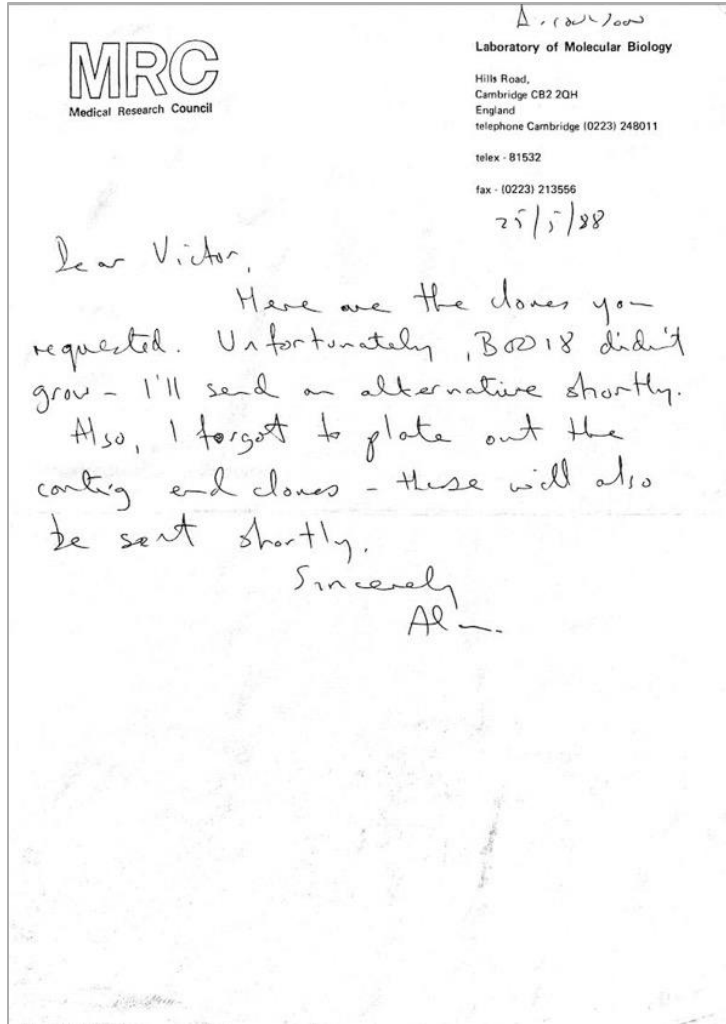 A. Coulson
MRC
Medical Research Council
Laboratory of Molecular Biology
Hills Road,
Cambridge CB2 2QH
England
telephone Cambridge (0223) 248011
telex - 81532
fax - (0223) 213556
25/5/88
Dear Victor,
Here are the clones you
requested. Unfortunately, B0218 didn't
grow - I'll send an alternative shortly.
Also, I forgot to plate out the
contig end clones - these will also
be sent shortly.
Sincerely
Alan.